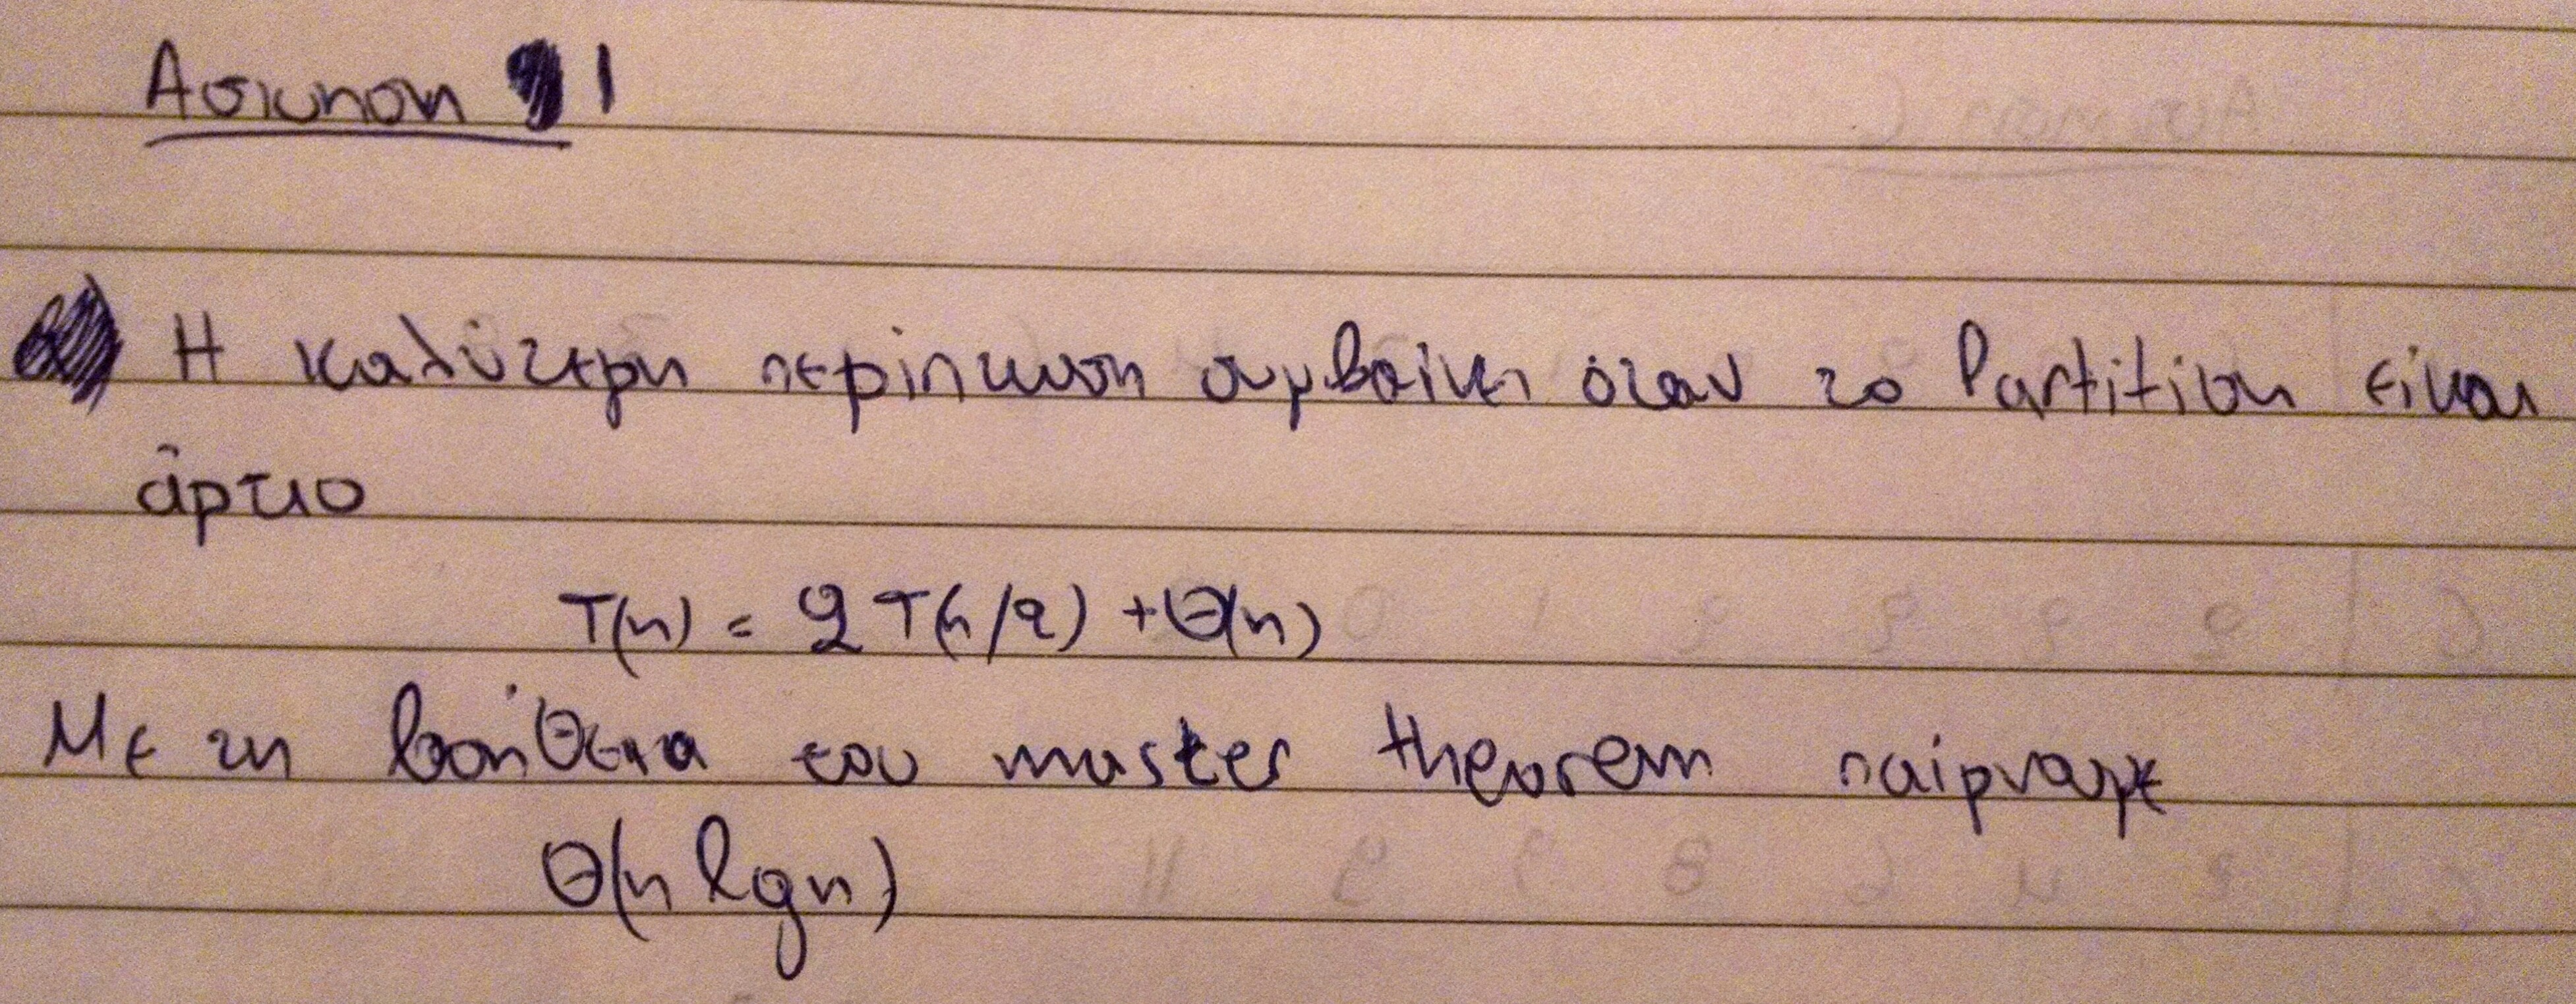 Άσκηση 1
Η καλύτερη περίπτωση συμβαίνει όταν το Partition είναι
άρτιο
T(n) = 2T(n/2) + Θ(n)
Με τη βοήθεια του master theorem παίρναμε
Θ(n lgn)